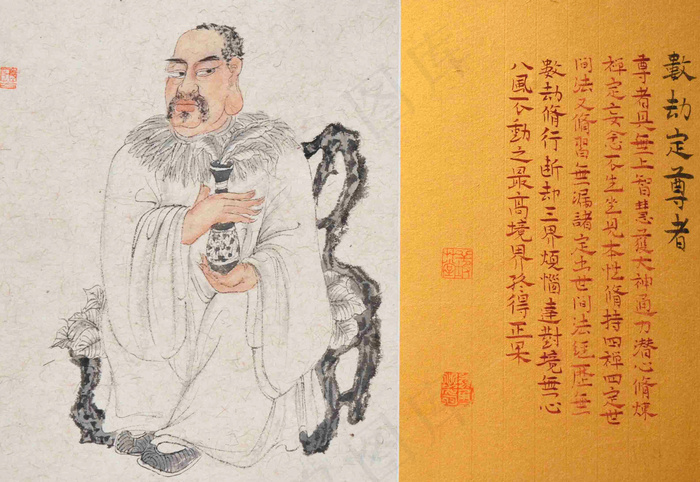 數劫定尊者
尊者具無上智慧大神通力潛心脩煉
禪定妄念不生坐見本性脩持四禪四定世
間法又脩習無漏諸定出世間法經歷無
數劫脩行断却三界煩惱達對境無心
八風不動之最高境界終得正果